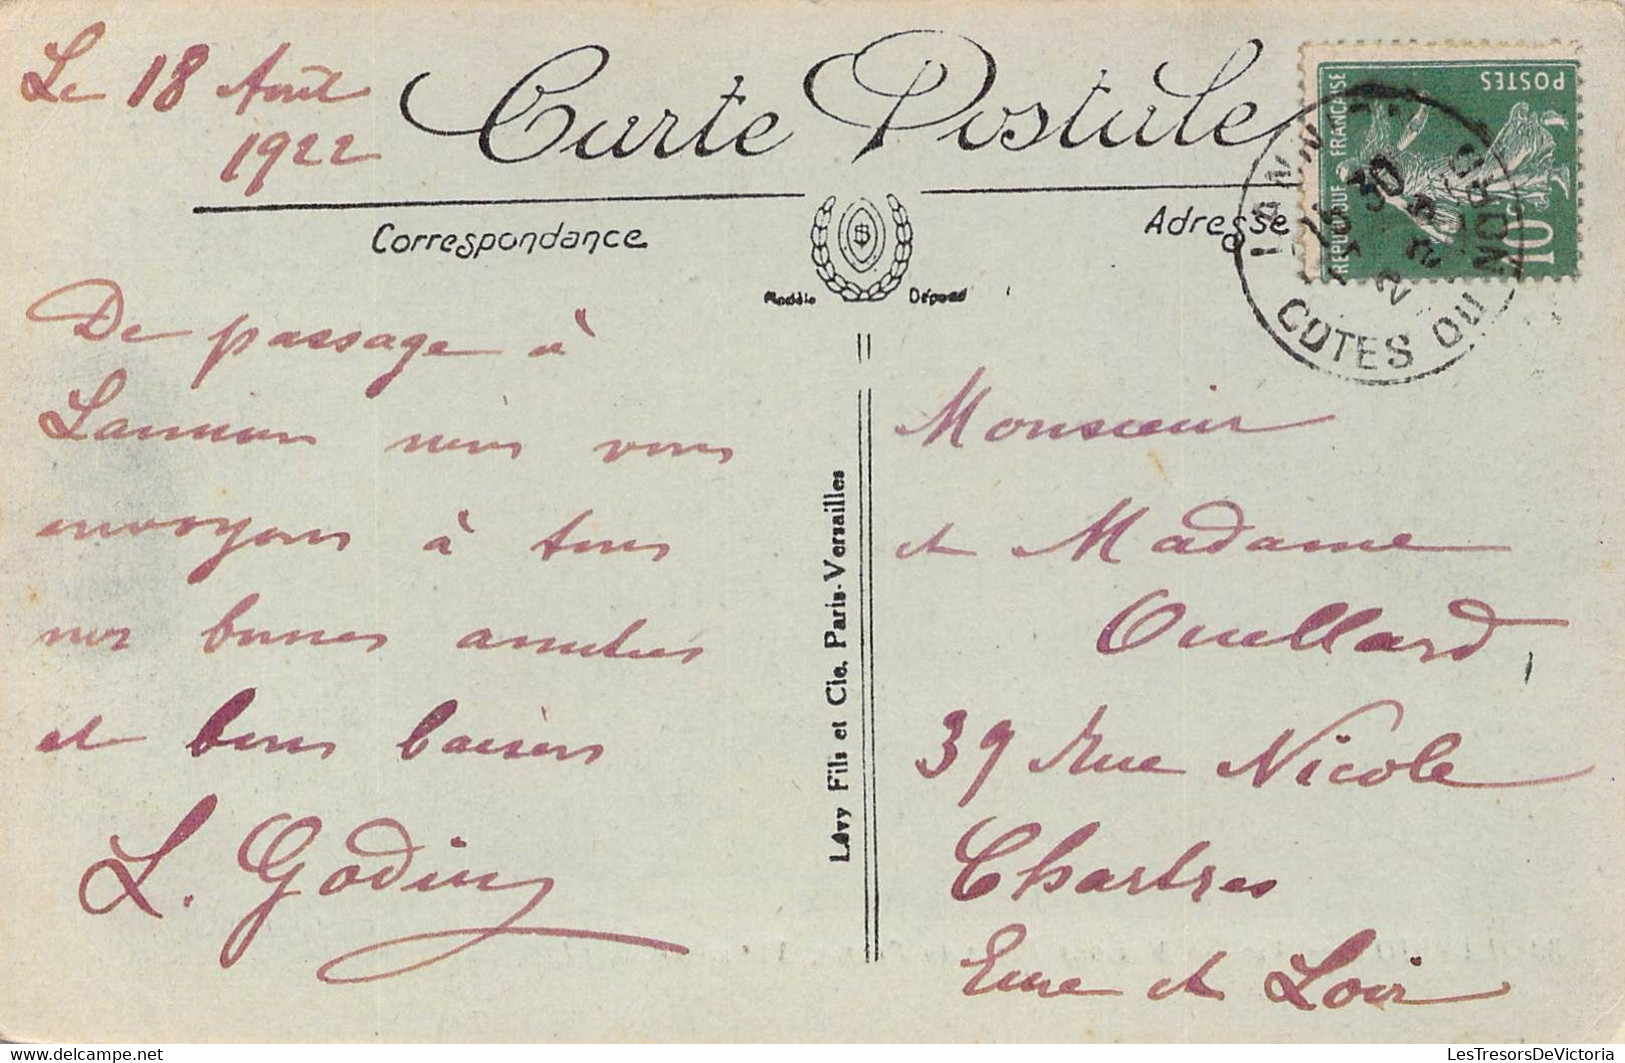 Le 18 Août
1922
Carte Postale
Correspondance
Adresse
Modèle Déposé
REPUBLIQUE FRANÇAISE
POSTES
10c
LANNION
COTES DU NORD
De passage à
Lannion nous vous
envoyons à tous
nos bonnes amitiés
et bons baisers
L. Godin
Lévy Fils et Cie. Paris-Versailles
Monsieur
et Madame
Ouellard
39 Rue Nicole
Chartres
Eure et Loir
LesTresorsDeVictoria
https://www.delcampe.net